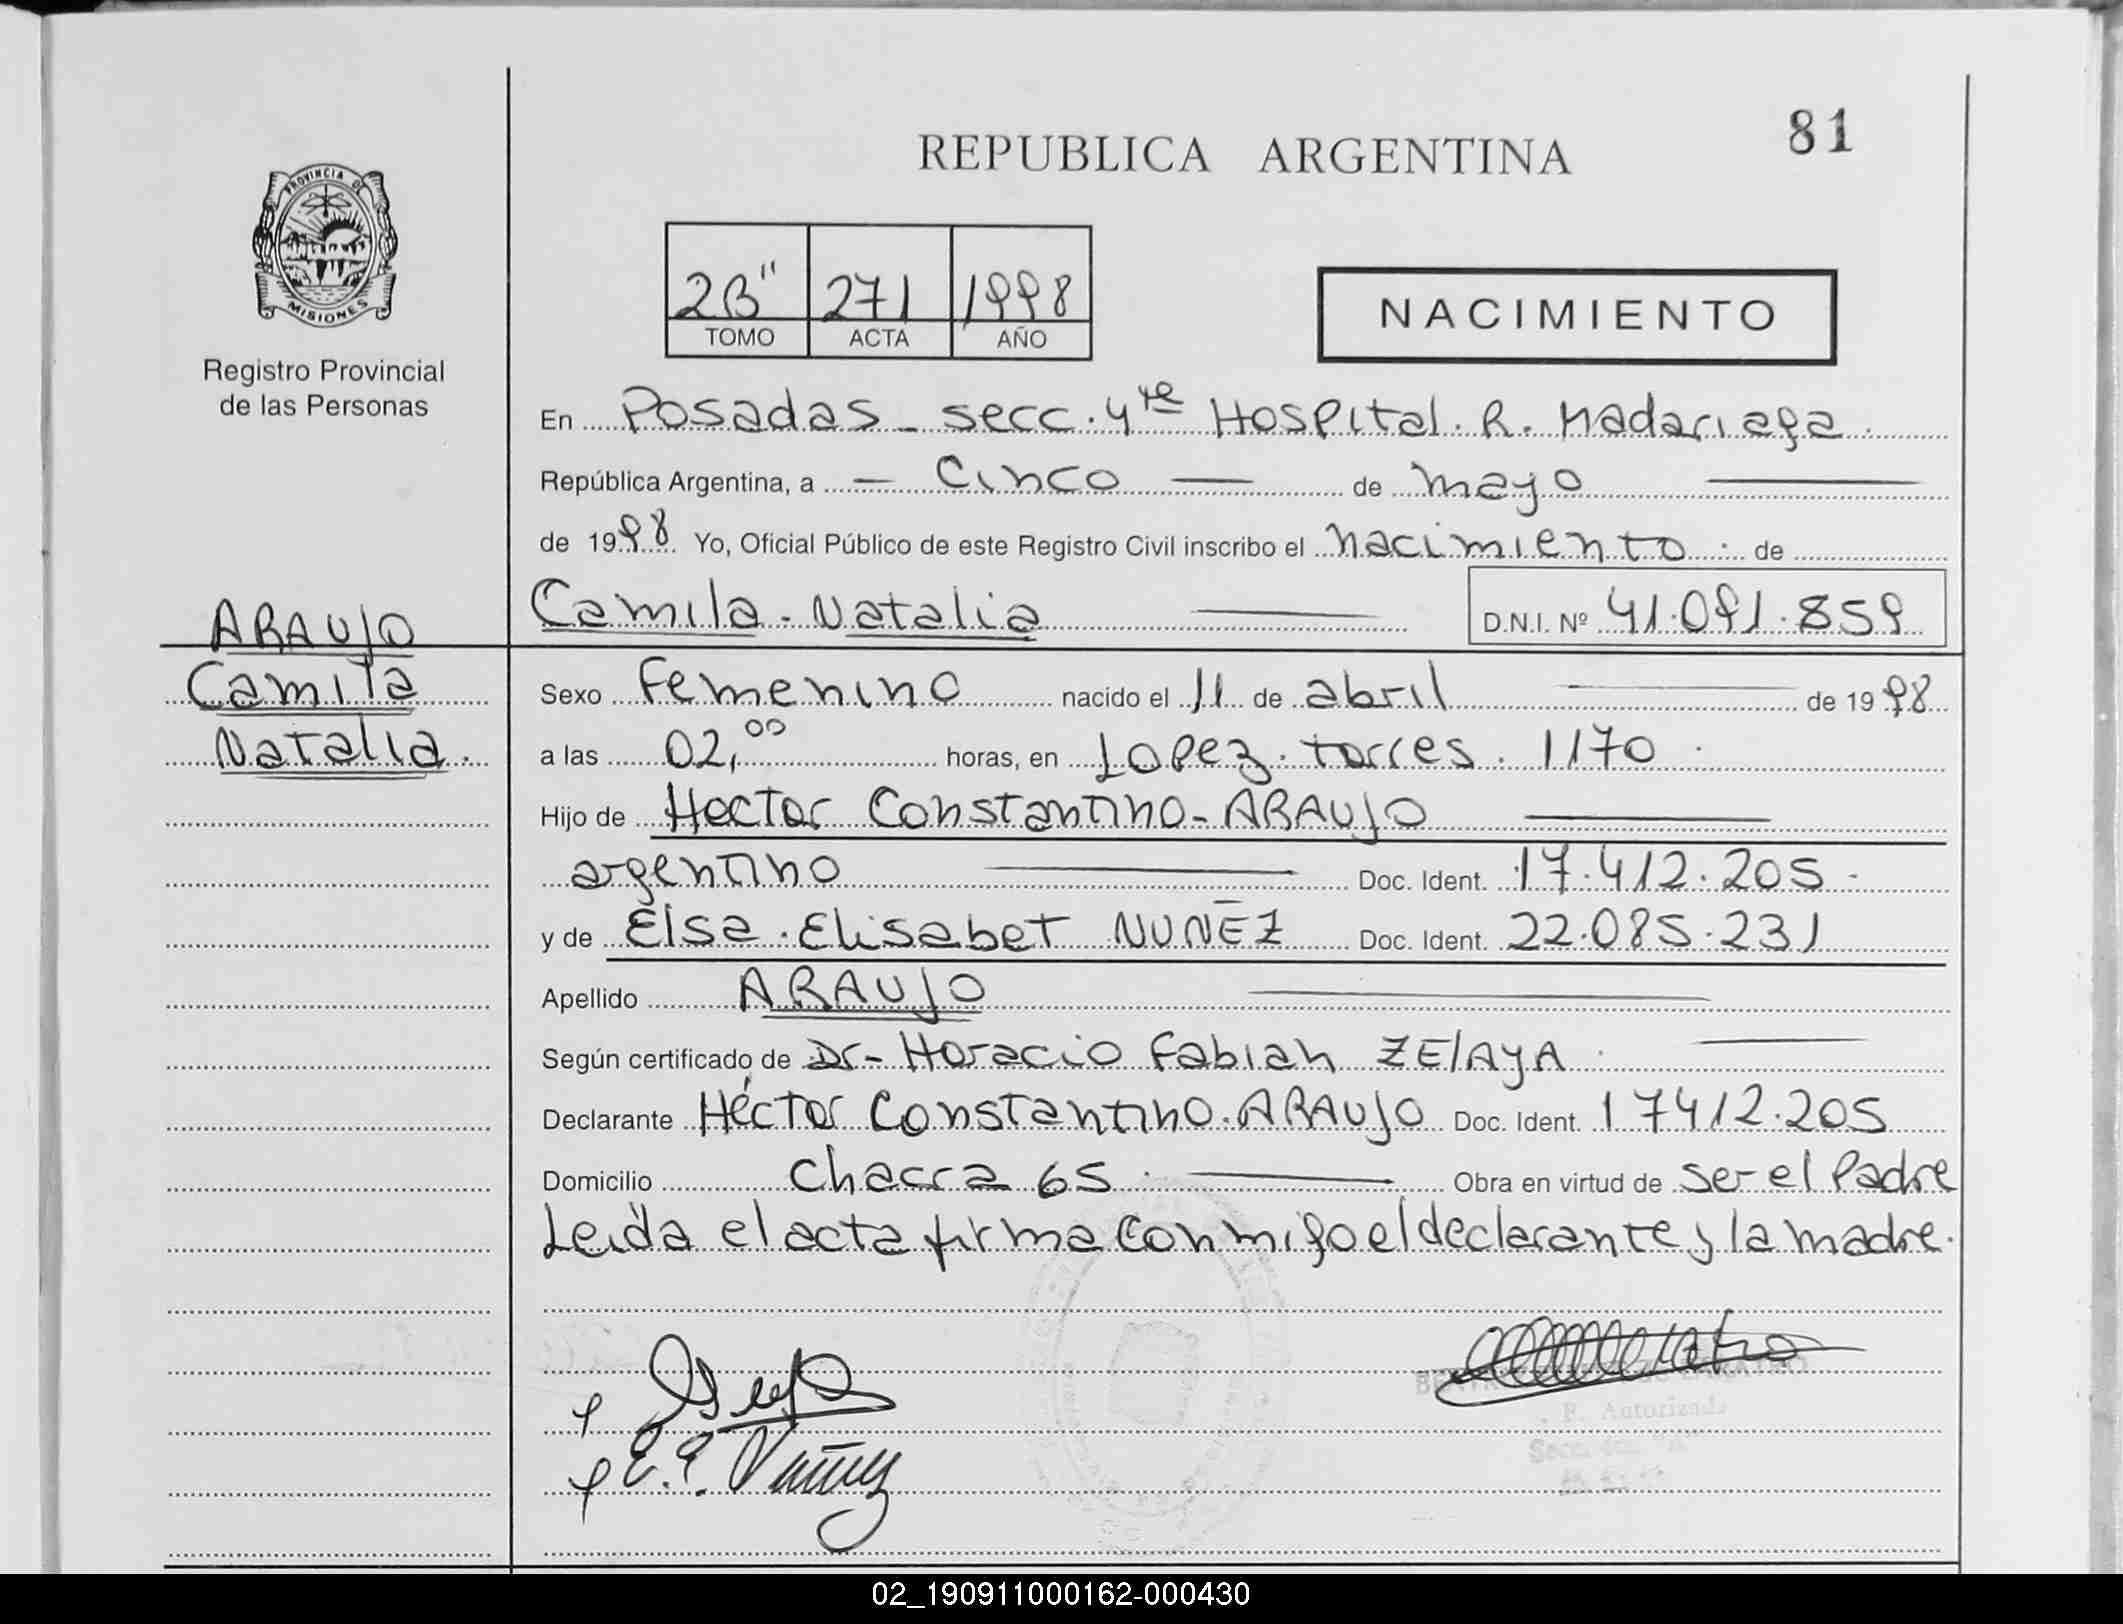 REPUBLICA ARGENTINA
81
PROVINCIA DE
MISIONES
Registro Provincial
de las Personas
2B" 271 1998
TOMO ACTA AÑO
NACIMIENTO
En Posadas - secc. 4ta Hospital. R. Madariaga.
República Argentina, a — Cinco — de mayo —
de 1998 Yo, Oficial Público de este Registro Civil inscribo el nacimiento. de
Camila. Natalia — D.N.I. Nº 41.091.859
ARAUJO
Camila
Natalia.
Sexo Femenino nacido el 11 de abril — de 1998
a las 02,00 horas, en Lopez. torres. 1170.
Hijo de Hector Constantino - ARAUJO —
argentino — Doc. Ident. 17.412.205.
y de Elsa. Elisabet NUÑEZ Doc. Ident. 22.085.231
Apellido ARAUJO —
Según certificado de Dr- Horacio Fabian ZElAyA. —
Declarante Héctor Constantino. ARAUJO Doc. Ident. 17412.205
Domicilio Chacra 65. — Obra en virtud de ser el Padre
Leida el acta firma conmigo el declarante y la madre.
E. E. Nuñez
F. Autorizada
02_190911000162-000430